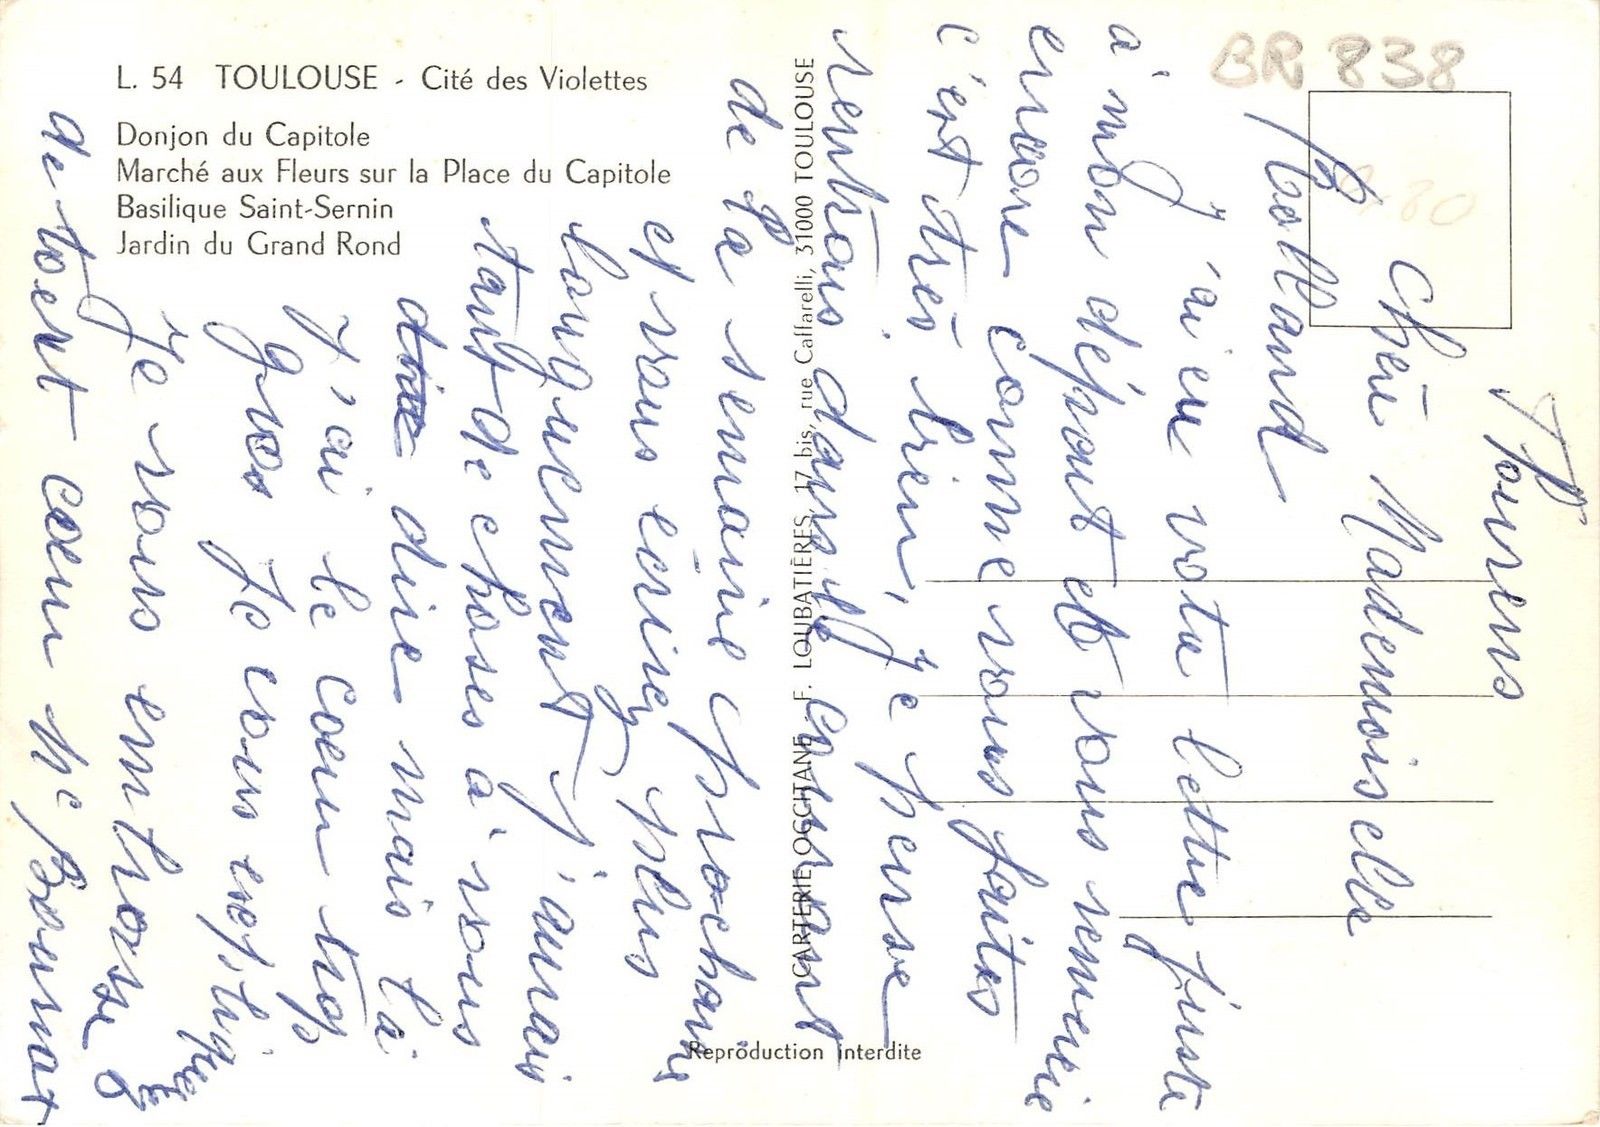 L. 54 TOULOUSE - Cité des Violettes
Donjon du Capitole
Marché aux Fleurs sur la Place du Capitole
Basilique Saint-Sernin
Jardin du Grand Rond
CARTERIE OCCITANE - F. LOUBATIÈRES, 17 bis, rue Caffarelli, 31000 TOULOUSE
Reproduction interdite
BR 838
Thouens
Chère Mademoiselle
Rolland
J'ai eu votre lettre juste
à mon départ et vous remercie
encore comme vous faites
c'est très bien, je pense
rentrais dans le courrant
de la semaine prochaine
et vous écrirez plus
longuement J'aurais
tant de choses à vous
dire mais là
J'ai le coeur trop
gros Je cours
Je vous embrasse
de tout coeur Me